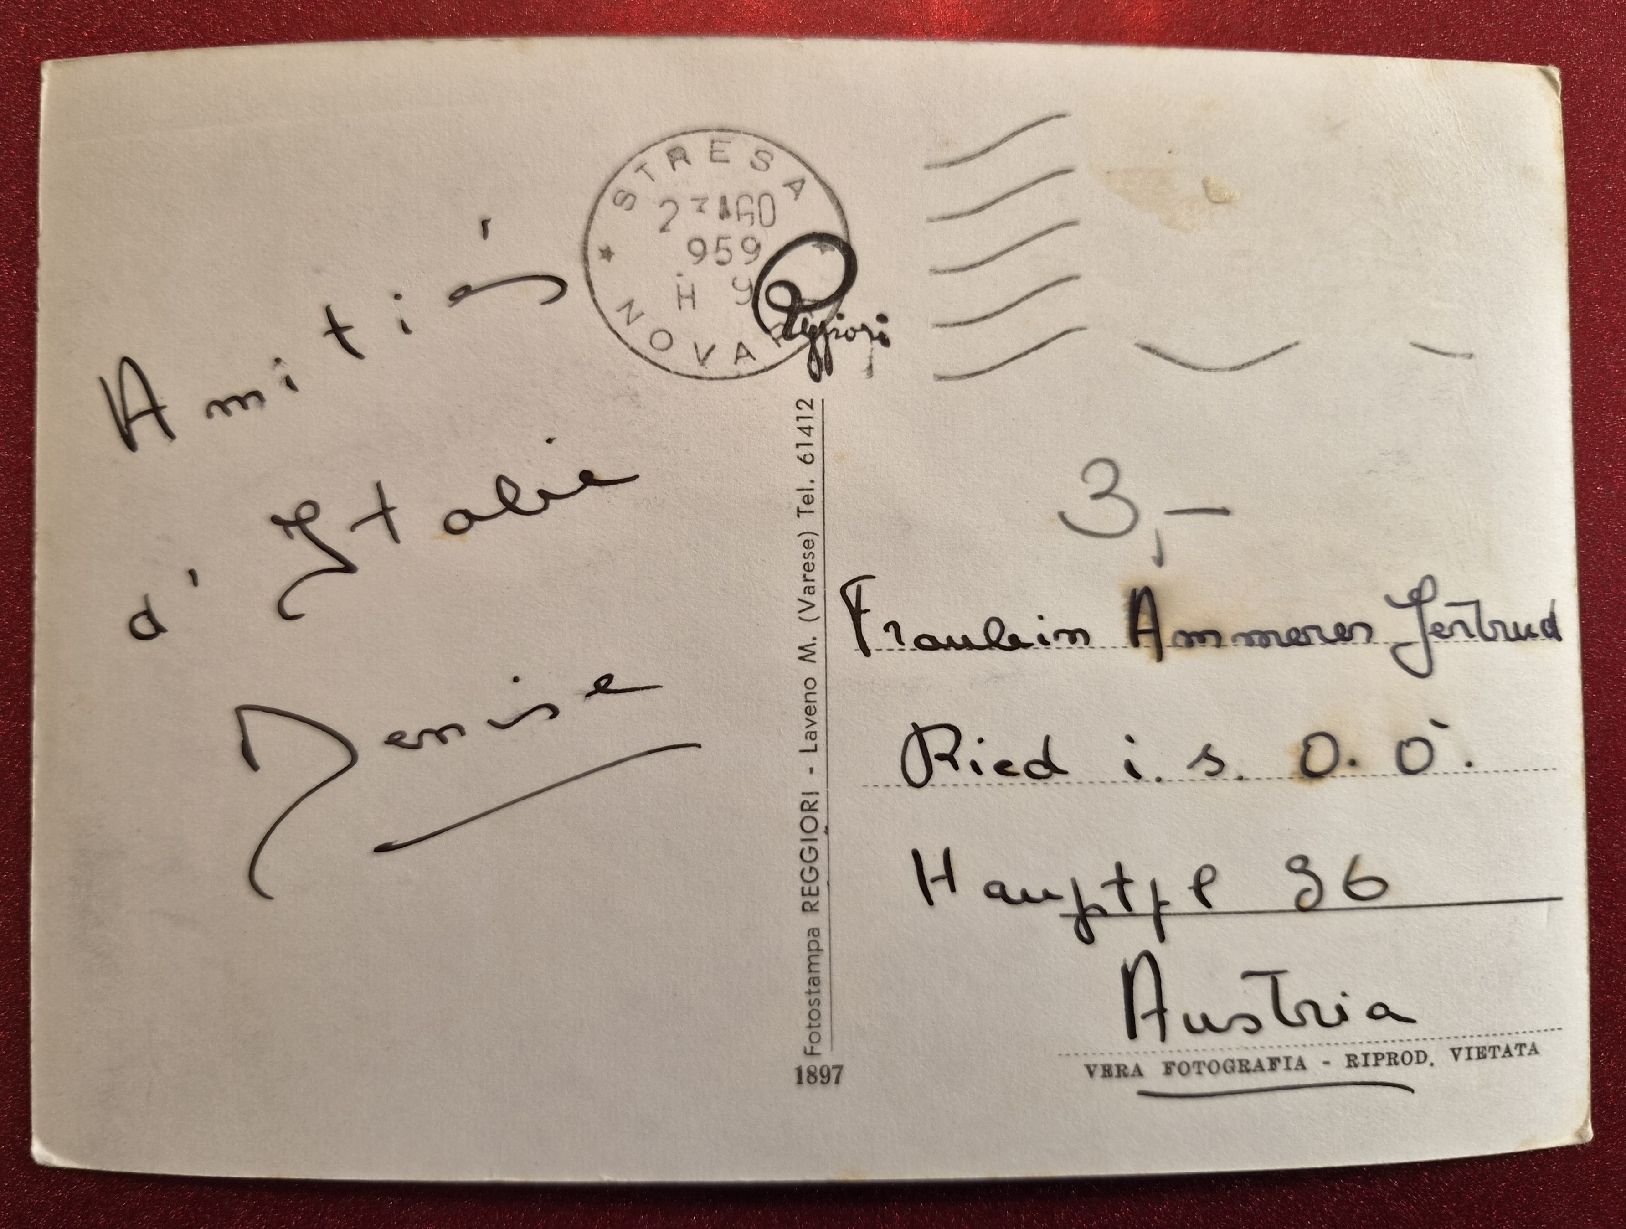 STRESA
23 AGO
959
H 9
NOVARA
Reggiori
Amitiés
d'Italie
Denise
Fotostampa REGGIORI - Laveno M. (Varese) Tel. 61412
1897
3,-
Fraulein Ammerer Gertrud
Ried i. s. O. Ö.
Hauptpl 36
Austria
VERA FOTOGRAFIA - RIPROD. VIETATA